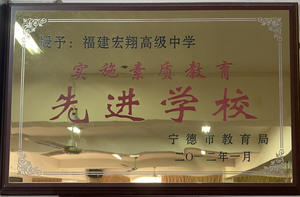 授予：福建宏翔高级中学
实施素质教育
先进学校
宁德市教育局
二〇一二年一月